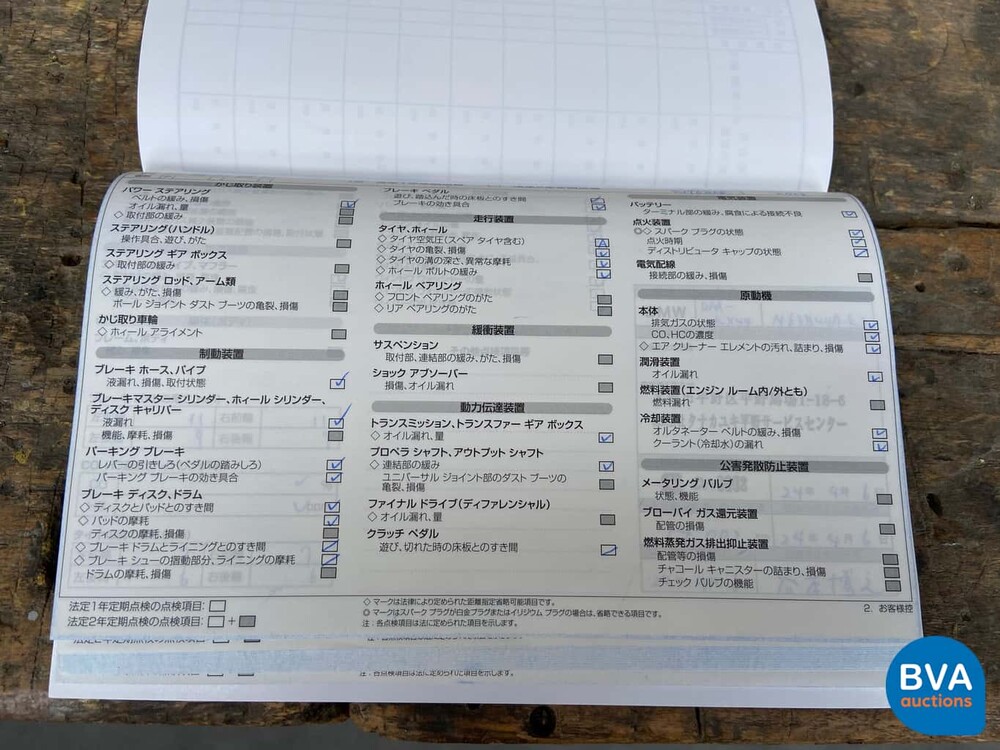 かじ取り装置
パワー ステアリング
ベルトの緩み、損傷
オイル漏れ、量
◇ 取付部の緩み
ステアリング(ハンドル)
操作具合、遊び、がた
ステアリング ギア ボックス
◇ 取付部の緩み
ステアリング ロッド、アーム類
◇ 緩み、がた、損傷
ボール ジョイント ダスト ブーツの亀裂、損傷
かじ取り車輪
◇ ホィール アライメント
制動装置
ブレーキ ホース、パイプ
液漏れ、損傷、取付状態
ブレーキマスター シリンダー、ホィール シリンダー、
ディスク キャリパー
液漏れ
機能、摩耗、損傷
パーキング ブレーキ
レバーの引きしろ(ペダルの踏みしろ)
パーキング ブレーキの効き具合
ブレーキ ディスク、ドラム
◇ ディスクとパッドとのすき間
◇ パッドの摩耗
ディスクの摩耗、損傷
◇ ブレーキ ドラムとライニングとのすき間
◇ ブレーキ シューの摺動部分、ライニングの摩耗
ドラムの摩耗、損傷
ブレーキ ペダル
遊び、踏込んだ時の床板とのすき間
ブレーキの効き具合
走行装置
タイヤ、ホィール
◇ タイヤ空気圧(スペア タイヤ含む)
◇ タイヤの亀裂、損傷
◇ タイヤの溝の深さ、異常な摩耗
◇ ホィール ボルトの緩み
ホィール ベアリング
◇ フロント ベアリングのがた
◇ リア ベアリングのがた
緩衝装置
サスペンション
取付部、連結部の緩み、がた、損傷
ショック アブソーバー
損傷、オイル漏れ
動力伝達装置
トランスミッション、トランスファー ギア ボックス
◇ オイル漏れ、量
プロペラ シャフト、アウトプット シャフト
◇ 連結部の緩み
ユニバーサル ジョイント部のダスト ブーツの
亀裂、損傷
ファイナル ドライブ(ディファレンシャル)
◇ オイル漏れ、量
クラッチ ペダル
遊び、切れた時の床板とのすき間
電気装置
バッテリー
ターミナル部の緩み、腐食による接続不良
点火装置
◎◇ スパーク プラグの状態
点火時期
ディストリビュータ キャップの状態
電気配線
接続部の緩み、損傷
原動機
本体
排気ガスの状態
CO、HCの濃度
◇ エア クリーナー エレメントの汚れ、詰まり、損傷
潤滑装置
オイル漏れ
燃料装置(エンジン ルーム内/外とも)
燃料漏れ
冷却装置
オルタネーター ベルトの緩み、損傷
クーラント(冷却水)の漏れ
公害発散防止装置
メータリング バルブ
状態、機能
ブローバイ ガス還元装置
配管の損傷
燃料蒸発ガス排出抑止装置
配管等の損傷
チャコール キャニスターの詰まり、損傷
チェック バルブの機能
法定1年定期点検の点検項目:
法定2年定期点検の点検項目: +
◇ マークは法律により定められた距離指定省略可能項目です。
◎ マークはスパーク プラグが白金プラグまたはイリジウム プラグの場合は、省略できる項目です。
注:各点検項目は法に定められた項目を示します。
2. お客様控
注:各点検項目は法に定められた項目を示します。
BVA
auctions